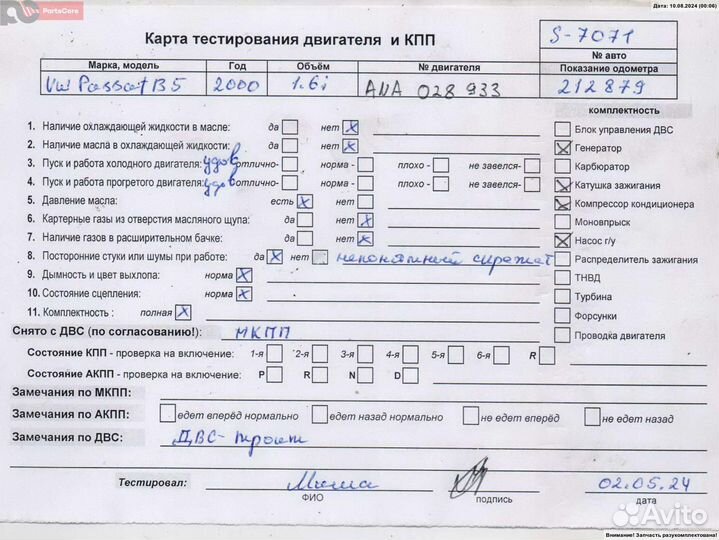 Дата: 10.08.2024 (00:06)
PartsCore
Карта тестирования двигателя и КПП
S-7071
№ авто
Марка, модель Год Объём № двигателя Показание одометра
VW Passat B5 2000 1.6i ANA 028 933 212879
комплектность
1. Наличие охлаждающей жидкости в масле: да нет X
Блок управления ДВС
2. Наличие масла в охлаждающей жидкости: да нет X
Генератор
3. Пуск и работа холодного двигателя: удов отлично- норма - плохо - не завелся-
Карбюратор
4. Пуск и работа прогретого двигателя: удов отлично- норма - плохо - не завелся-
Катушка зажигания
5. Давление масла: есть X нет
Компрессор кондиционера
6. Картерные газы из отверстия масляного щупа: да нет X
Моновпрыск
7. Наличие газов в расширительном бачке: да нет X
Насос г/у
8. Посторонние стуки или шумы при работе: да X нет непонятный скрежет
Распределитель зажигания
9. Дымность и цвет выхлопа: норма X
ТНВД
10. Состояние сцепления: норма X
Турбина
11. Комплектность : полная X
Форсунки
Снято с ДВС (по согласованию!): МКПП
Проводка двигателя
Состояние КПП - проверка на включение: 1-я 2-я 3-я 4-я 5-я 6-я R
Состояние АКПП - проверка на включение: P R N D
Замечания по МКПП:
Замечания по АКПП: едет вперёд нормально едет назад нормально не едет вперёд не едет назад
Замечания по ДВС: ДВС-троит
Тестировал: Миша 02.05.24
ФИО подпись дата
Avito
Внимание! Запчасть разукомплектована!